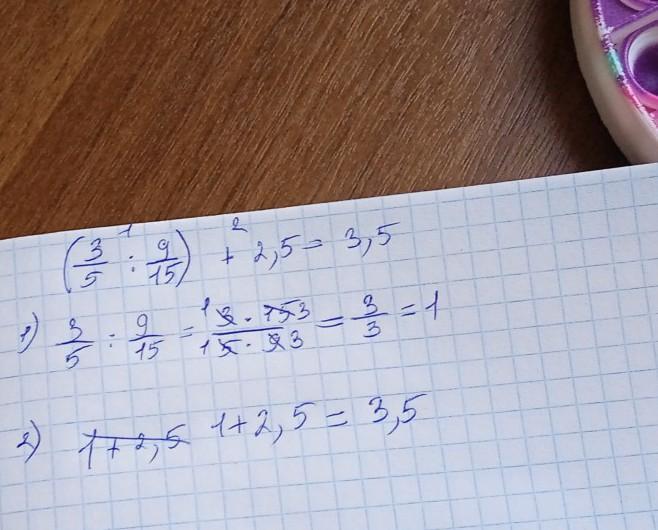 (3/5 : 9/15) + 2,5 = 3,5
1) 3/5 : 9/15 = 3 · 15 3 / 5 · 9 3 = 3/3 = 1
2) 1+2,5 1+2,5 = 3,5